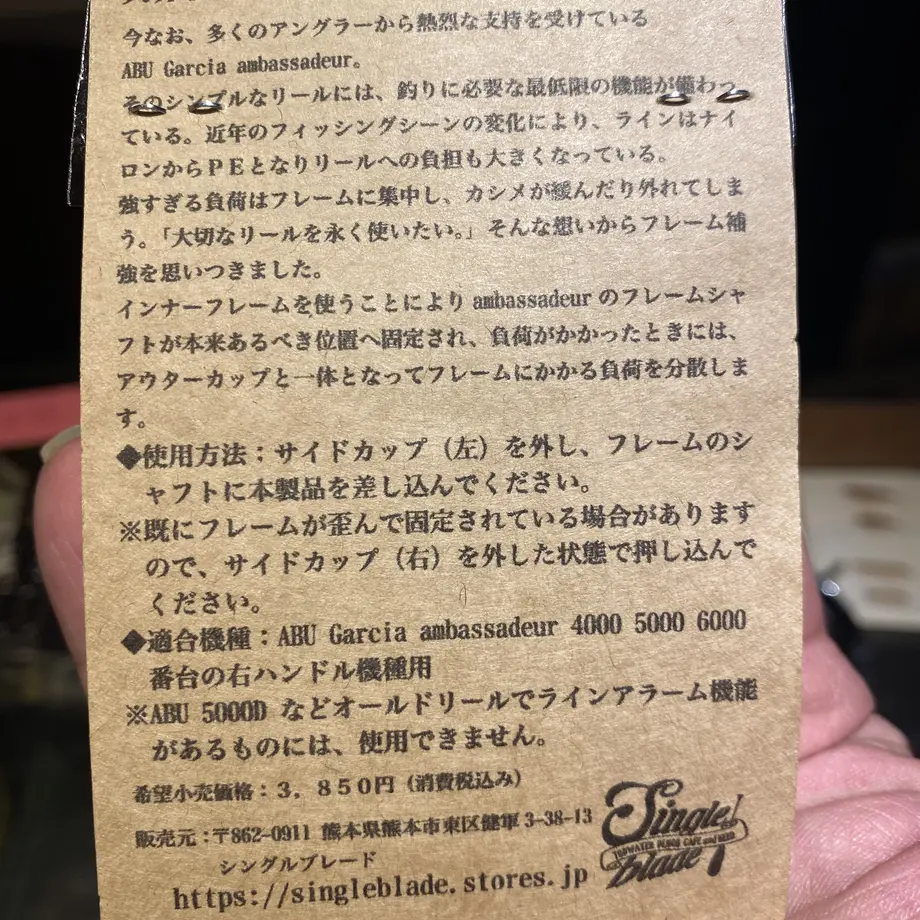 今なお、多くのアングラーから熱烈な支持を受けている
ABU Garcia ambassadeur。
そのシンプルなリールには、釣りに必要な最低限の機能が備わっ
ている。近年のフィッシングシーンの変化により、ラインはナイ
ロンからＰＥとなりリールへの負担も大きくなっている。
強すぎる負荷はフレームに集中し、カシメが緩んだり外れてしま
う。「大切なリールを永く使いたい。」そんな想いからフレーム補
強を思いつきました。
インナーフレームを使うことによりambassadeurのフレームシャ
フトが本来あるべき位置へ固定され、負荷がかかったときには、
アウターカップと一体となってフレームにかかる負荷を分散しま
す。
◆使用方法：サイドカップ（左）を外し、フレームのシ
ャフトに本製品を差し込んでください。
※既にフレームが歪んで固定されている場合があります
ので、サイドカップ（右）を外した状態で押し込んで
ください。
◆適合機種：ABU Garcia ambassadeur 4000 5000 6000
番台の右ハンドル機種用
※ABU 5000D などオールドリールでラインアラーム機能
があるものには、使用できません。
希望小売価格：３，８５０円（消費税込み）
販売元：〒862-0911 熊本県熊本市東区健軍 3-38-13
シングルブレード
https://singleblade.stores.jp
Single!
blade